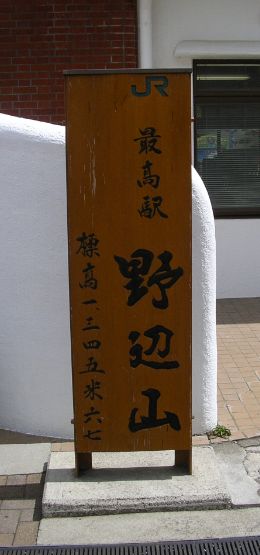 JR
最高駅
野辺山
標高一、三四五米六七